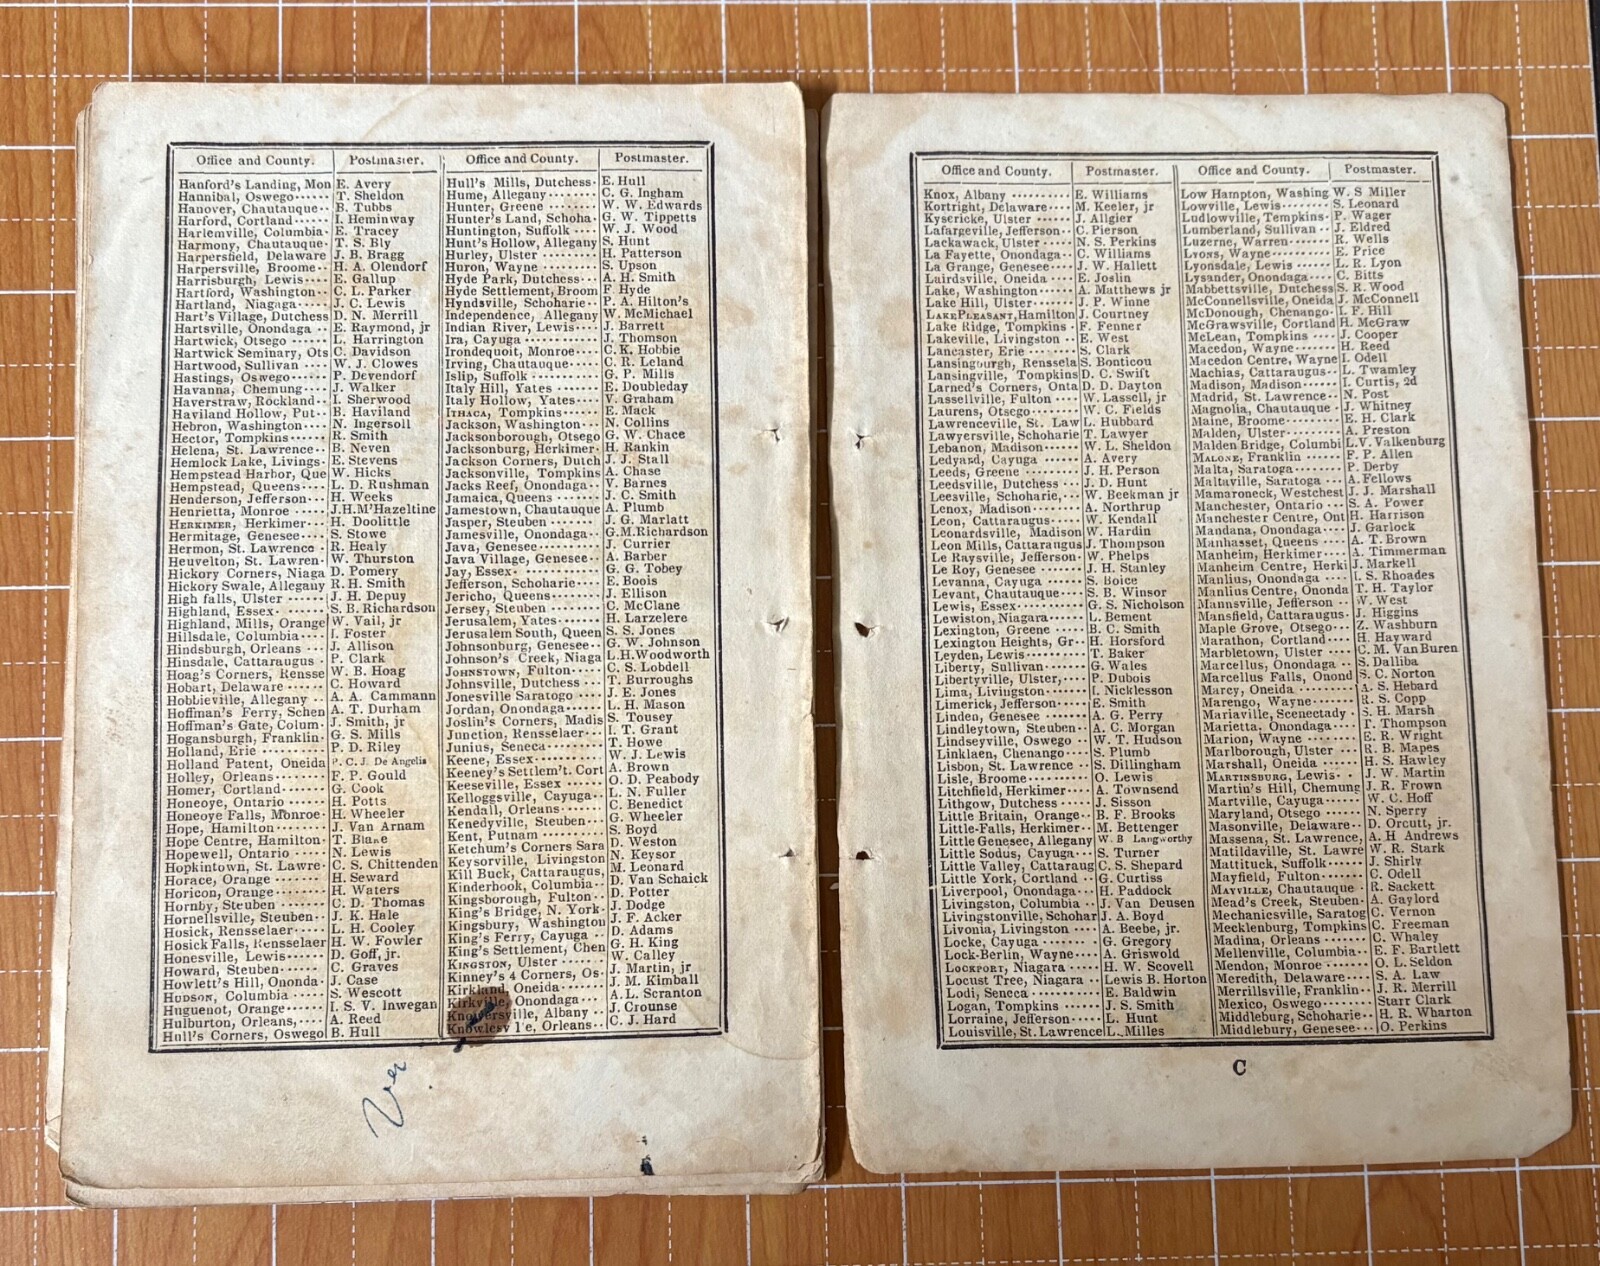 Office and County. Postmaster. Office and County. Postmaster.
Hanford's Landing, Mon E. Avery
Hannibal, Oswego T. Sheldon
Hanover, Chautauque B. Tubbs
Harford, Cortland I. Heminway
Harlemville, Columbia E. Tracey
Harmony, Chautauque T. S. Bly
Harpersfield, Delaware J. B. Bragg
Harpersville, Broome H. A. Olendorf
Harrisburgh, Lewis E. Gallup
Hartford, Washington C. L. Parker
Hartland, Niagaga J. C. Lewis
Hart's Village, Dutchess D. N. Merrill
Hartsville, Onondaga E. Raymond, jr
Hartwick, Otsego L. Harrington
Hartwick Seminary, Ots C. Davidson
Hartwood, Sullivan W. J. Clowes
Hastings, Oswego P. Devendorf
Havanna, Chemung J. Walker
Haverstraw, Rockland I. Sherwood
Haviland Hollow, Put B. Haviland
Hebron, Washington N. Ingersoll
Hector, Tompkins R. Smith
Helena, St. Lawrence B. Neven
Hemlock Lake, Livings E. Stevens
Hempstead Harbor, Que W. Hicks
Hempstead, Queens L. D. Rushman
Henderson, Jefferson H. Weeks
Henrietta, Monroe J.H.M'Hazeltine
HERKIMER, Herkimer H. Doolittle
Hermitage, Genesee S. Stowe
Hermon, St. Lawrence R. Healy
Heuvelton, St. Lawren W. Thurston
Hickory Corners, Niaga D. Pomery
Hickory Swale, Allegany R. H. Smith
High falls, Ulster J. H. Depuy
Highland, Essex S. B. Richardson
Highland, Mills, Orange W. Vail, jr
Hillsdale, Columbia I. Foster
Hindsburgh, Orleans J. Allison
Hinsdale, Cattaraugus P. Clark
Hoag's Corners, Rensse W. B. Hoag
Hobart, Delaware C. Howard
Hobbieville, Allegany A. A. Cammann
Hoffman's Ferry, Schen A. T. Durham
Hoffman's Gate, Colum J. Smith, jr
Hogansburgh, Franklin G. S. Mills
Holland, Erie P. D. Riley
Holland Patent, Oneida P. C. J. De Angelis
Holley, Orleans F. P. Gould
Homer, Cortland G. Cook
Honeoye, Ontario H. Potts
Honeoye Falls, Monroe H. Wheeler
Hope, Hamilton J. Van Arnam
Hope Centre, Hamilton T. Blake
Hopewell, Ontario N. Lewis
Hopkintown, St. Lawre C. S. Chittenden
Horace, Orange H. Seward
Horicon, Orange H. Waters
Hornby, Steuben C. D. Thomas
Hornellsville, Steuben J. K. Hale
Hosick, Rensselaer L. H. Cooley
Hosick Falls, Rensselaer H. W. Fowler
Honesville, Lewis D. Goff, jr.
Howard, Steuben C. Graves
Howlett's Hill, Ononda J. Case
HUDSON, Columbia S. Wescott
Huguenot, Orange I. S. V. Inwegan
Hulburton, Orleans, A. Reed
Hull's Corners, Oswego B. Hull
Hull's Mills, Dutchess E. Hull
Hume, Allegany C. G. Ingham
Hunter, Greene W. W. Edwards
Hunter's Land, Schoha G. W. Tippetts
Huntington, Suffolk W. J. Wood
Hunt's Hollow, Allegany S. Hunt
Hurley, Ulster H. Patterson
Huron, Wayne S. Upson
Hyde Park, Dutchess A. H. Smith
Hyde Settlement, Broom F. Hyde
Hyndsville, Schoharie P. A. Hilton's
Independence, Allegany W. McMichael
Indian River, Lewis J. Barrett
Ira, Cayuga J. Thomson
Irondequoit, Monroe C. K. Hobbie
Irving, Chautauque C. R. Leland
Islip, Suffolk G. P. Mills
Italy Hill, Yates E. Doubleday
Italy Hollow, Yates V. Graham
ITHACA, Tompkins E. Mack
Jackson, Washington N. Collins
Jacksonborough, Otsego G. W. Chace
Jacksonburg, Herkimer H. Rankin
Jackson Corners, Dutch J. J. Stall
Jacksonville, Tompkins A. Chase
Jacks Reef, Onondaga V. Barnes
Jamaica, Queens J. C. Smith
Jamestown, Chautauque A. Plumb
Jasper, Steuben J. G. Marlatt
Jamesville, Onondaga G.M.Richardson
Java, Genesee J. Currier
Java Village, Genesee A. Barber
Jay, Essex G. G. Tobey
Jefferson, Schoharie E. Boois
Jericho, Queens J. Ellison
Jersey, Steuben C. McClane
Jerusalem, Yates H. Larzelere
Jerusalem South, Queen S. S. Jones
Johnsonburg, Genesee G. W. Johnson
Johnson's Creek, Niaga L.H.Woodworth
JOHNSTOWN, Fulton C. S. Lobdell
Johnsville, Dutchess T. Burroughs
Jonesville Saratogo J. E. Jones
Jordan, Onondaga L. H. Mason
Joslin's Corners, Madis S. Tousey
Junction, Rensselaer I. T. Grant
Junius, Seneca T. Howe
Keene, Essex W. J. Lewis
Keeney's Settlem't. Cort A. Brown
Keeseville, Essex O. D. Peabody
Kelloggsville, Cayuga L. N. Fuller
Kendall, Orleans C. Benedict
Kenedyville, Steuben G. Wheeler
Kent, Putnam S. Boyd
Ketchum's Corners Sara D. Weston
Keysorville, Livingston N. Keysor
Kill Buck, Cattaraugus, M. Leonard
Kinderhook, Columbia D. Van Schaick
Kingsborough, Fulton D. Potter
King's Bridge, N. York J. Dodge
Kingsbury, Washington J. F. Acker
King's Ferry, Cayuga D. Adams
King's Settlement, Chen G. H. King
KINGSTON, Ulster W. Calley
Kinney's 4 Corners, Os J. Martin, jr
Kirkland, Oneida J. M. Kimball
Kirkville, Onondaga A. L. Scranton
Knowersville, Albany J. Crounse
Knowlesville, Orleans C. J. Hard
Ver
Office and County. Postmaster. Office and County. Postmaster.
Knox, Albany E. Williams
Kortright, Delaware M. Keeler, jr
Kysericke, Ulster J. Allgier
Lafargeville, Jefferson C. Pierson
Lackawack, Ulster N. S. Perkins
La Fayette, Onondaga C. Williams
La Grange, Genesee J. W. Hallett
Lairdsville, Oneida E. Joslin
Lake, Washington A. Matthews jr
Lake Hill, Ulster J. P. Winne
LAKE PLEASANT, Hamilton J. Courtney
Lake Ridge, Tompkins F. Fenner
Lakeville, Livingston E. West
Lancaster, Erie S. Clark
Lansingburgh, Renssela S. Bonticou
Lansingville, Tompkins D. C. Swift
Larned's Corners, Onta D. D. Dayton
Lassellville, Fulton W. Lassell, jr
Laurens, Otsego W. C. Fields
Lawrenceville, St. Law L. Hubbard
Lawyersville, Schoharie T. Lawyer
Lebanon, Madison W. L. Sheldon
Ledyard, Cayuga A. Avery
Leeds, Greene J. H. Person
Leedsville, Dutchess J. D. Hunt
Leesville, Schoharie, W. Beekman jr
Lenox, Madison A. Northrup
Leon, Cattaraugus W. Kendall
Leonardsville, Madison W. Hardin
Leon Mills, Cattaraugus J. Thompson
Le Raysville, Jefferson W. Phelps
Le Roy, Genesee J. H. Stanley
Levanna, Cayuga S. Boice
Levant, Chautauque S. B. Winsor
Lewis, Essex G. S. Nicholson
Lewiston, Niagara L. Bement
Lexington, Greene B. C. Smith
Lexington Heights, Gr H. Horsford
Leyden, Lewis T. Baker
Liberty, Sullivan G. Wales
Libertyville, Ulster, P. Dubois
Lima, Livingston I. Nicklesson
Limerick, Jefferson E. Smith
Linden, Genesee A. G. Perry
Lindleytown, Steuben A. C. Morgan
Lindseyville, Oswego W. T. Hudson
Linklaen, Chenango S. Plumb
Lisbon, St. Lawrence S. Dillingham
Lisle, Broome O. Lewis
Litchfield, Herkimer A. Townsend
Lithgow, Dutchess J. Sisson
Little Britain, Orange B. F. Brooks
Little-Falls, Herkimer M. Bettenger
Little Genesee, Allegany W. B Langworthy
Little Sodus, Cayuga S. Turner
Little Valley, Cattaraug C. S. Shepard
Little York, Cortland G. Curtiss
Liverpool, Onondaga H. Paddock
Livingston, Columbia J. Van Deusen
Livingstonville, Schohar J. A. Boyd
Livonia, Livingston A. Beebe, jr.
Locke, Cayuga G. Gregory
Lock-Berlin, Wayne A. Griswold
LOCKPORT, Niagara H. W. Scovell
Locust Tree, Niagara Lewis B. Horton
Lodi, Seneca E. Baldwin
Logan, Tompkins J. S. Smith
Lorraine, Jefferson L. Hunt
Louisville, St. Lawrence L. Milles
Low Hampton, Washing W. S Miller
Lowville, Lewis S. Leonard
Ludlowville, Tempkins P. Wager
Lumberland, Sullivan J. Eldred
Luzerne, Warren R. Wells
LYONS, Wayne E. Price
Lyonsdale, Lewis L. R. Lyon
Lysander, Onondaga C. Bitts
Mabbettsville, Dutchess S. R. Wood
McConnellsville, Oneida J. McConnell
McDonough, Chenango I. F. Hill
McGrawsville, Cortland H. McGraw
McLean, Tompkins J. Cooper
Macedon, Wayne H. Reed
Macedon Centre, Wayne I. Odell
Machias, Cattaraugus L. Twamley
Madison, Madison I. Curtis, 2d
Madrid, St. Lawrence N. Post
Magnolia, Chautauque J. Whitney
Maine, Broome E. H. Clark
Malden, Ulster A. Preston
Malden Bridge, Columbi L.V. Valkenburg
MALONE, Franklin F. P. Allen
Malta, Saratoga P. Derby
Maltaville, Saratoga A. Fellows
Mamaroneck, Westchest J. J. Marshall
Manchester, Ontario S. A. Power
Manchester Centre, Ont H. Harrison
Mandana, Onondaga J. Garlock
Manhasset, Queens A. T. Brown
Manheim, Herkimer A. Timmerman
Manheim Centre, Herki J. Markell
Manlius, Onondaga I. S. Rhoades
Manlius Centre, Ononda T. H. Taylor
Mannsville, Jefferson W. West
Mansfield, Cattaraugus J. Higgins
Maple Grove, Otsego Z. Washburn
Marathon, Cortland H. Hayward
Marbletown, Ulster C. M. VanBuren
Marcellus, Onondaga S. Dalliba
Marcellus Falls, Onond S. C. Norton
Marcy, Oneida A. S. Hebard
Marengo, Wayne R. S. Copp
Mariaville, Sceneetady S. H. Marsh
Marietta, Onondaga T. Thompson
Marion, Wayne E. R. Wright
Marlborough, Ulster R. B. Mapes
Marshall, Oneida H. S. Hawley
MARTINSBURG, Lewis J. W. Martin
Martin's Hill, Chemung J. R. Frown
Martville, Cayuga W. C. Hoff
Maryland, Otsego N. Sperry
Masonville, Delaware D. Orcutt, jr.
Massena, St. Lawrence, A. H Andrews
Matildaville, St. Lawre W. R. Stark
Mattituck, Suffolk J. Shirly
Mayfield, Fulton C. Odell
MAYVILLE, Chautauque R. Sackett
Mead's Creek, Steuben A. Gaylord
Mechanicsville, Saratog C. Vernon
Mecklenburg, Tompkins C. Freeman
Madina, Orleans C. Whaley
Mellenville, Columbia E. F. Bartlett
Mendon, Monroe O. L. Seldon
Meredith, Delaware S. A. Law
Merrillsville, Franklin J. R. Merrill
Mexico, Oswego Starr Clark
Middleburg, Schoharie H. R. Wharton
Middlebury, Genesee O. Perkins
C